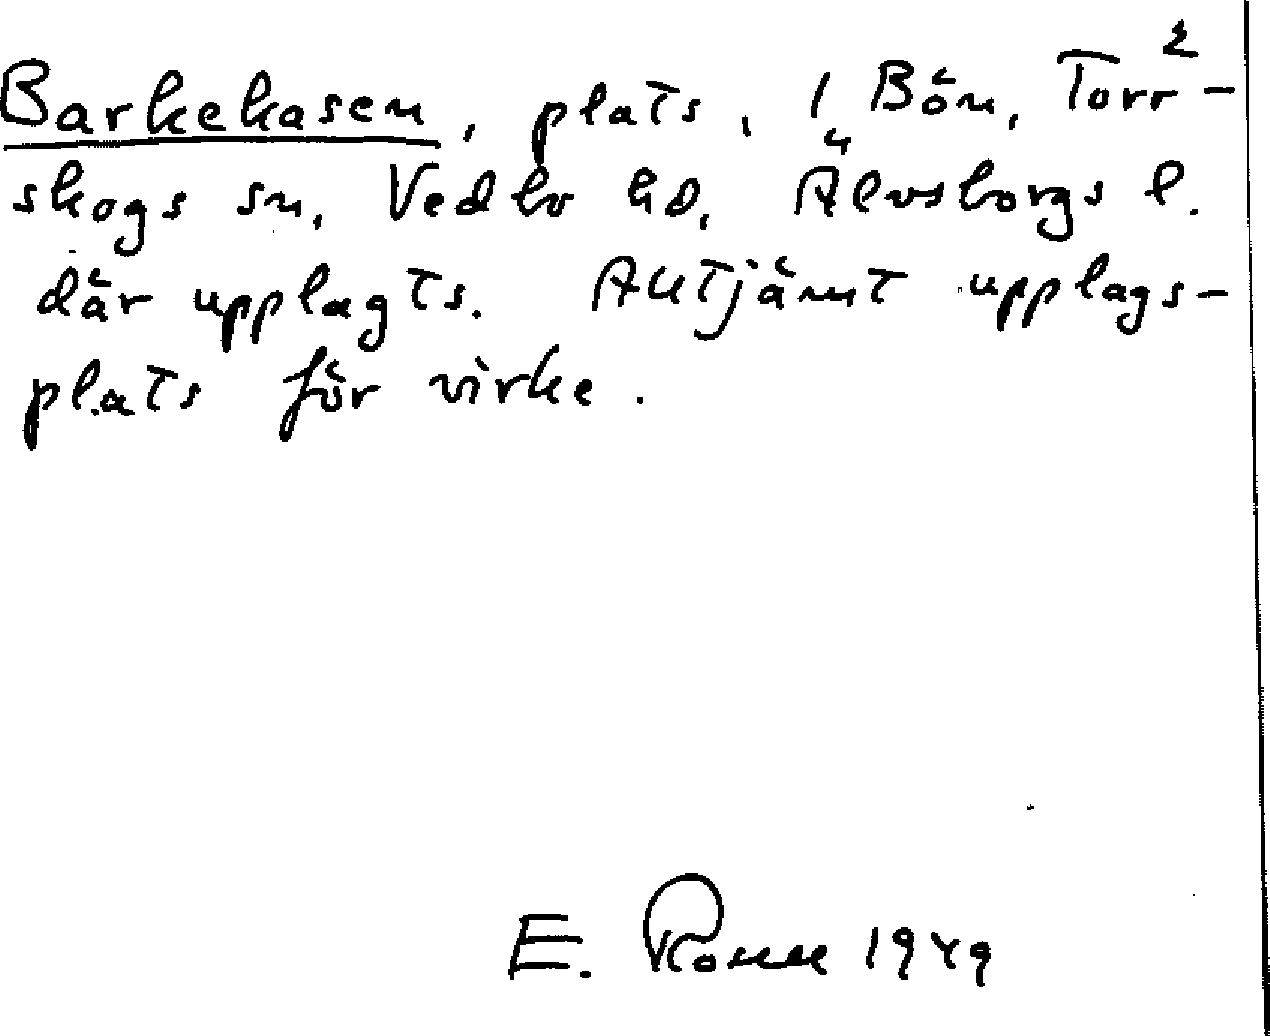 Barkekasen, plats, i Bön, Torr²-
skogs sn, Vedbo hd, Älvsborgs l.
där upplagts. Alltjämt upplags-
plats för virke.
E. 1949